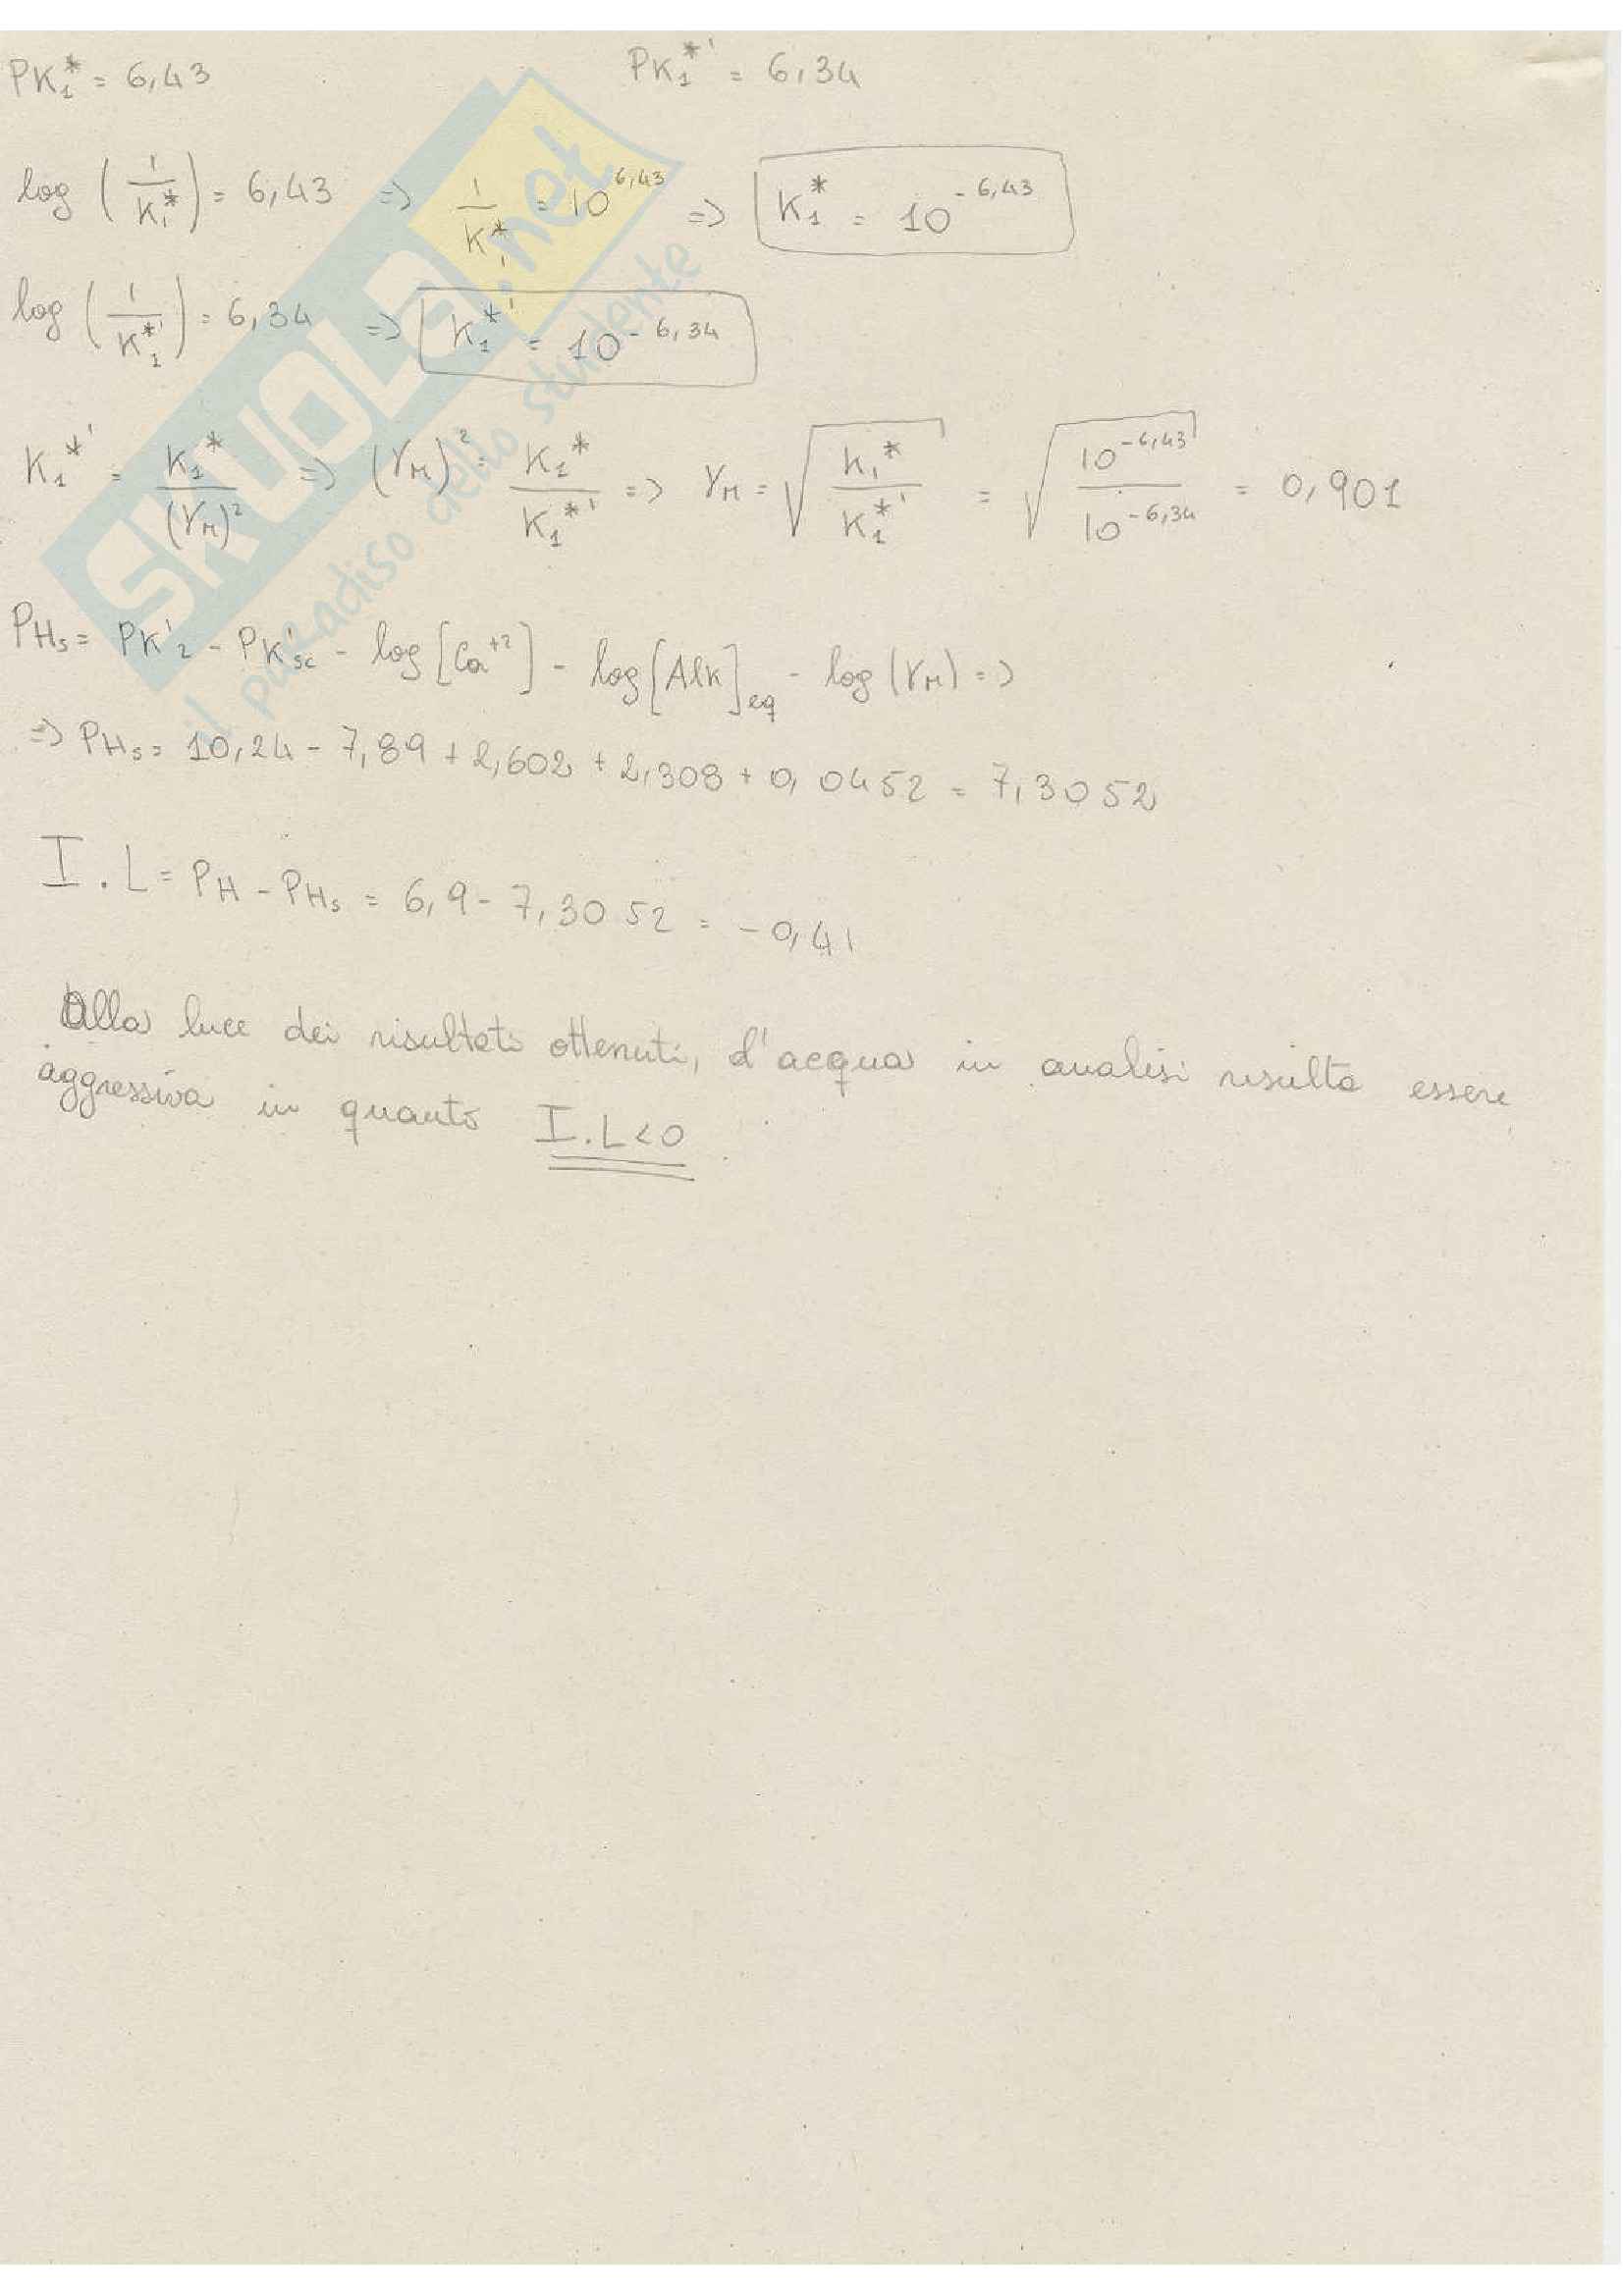 PK₁* = 6,43    PK₁*' = 6,34
log (1/K₁*) = 6,43 => 1/K₁* = 10^6,43 => K₁* = 10^-6,43
log (1/K₁*') = 6,34 => K₁*' = 10^-6,34
K₁*' = K₁*/(γM)² => (γM)² = K₁*/K₁*' => γM = √(K₁*/K₁*') = √(10^-6,43/10^-6,34) = 0,901
PHs = PK'₂ - PK'sc - log [Ca⁺²] - log [Alk]eq - log (γM) =>
=> PHs = 10,24 - 7,89 + 2,602 + 2,308 + 0,0452 = 7,3052
I.L = PH - PHs = 6,9 - 7,3052 = -0,41
Alla luce dei risultati ottenuti, l'acqua in analisi risulta essere
aggressiva in quanto I.L<0
SKUOLA.net
il paradiso dello studente